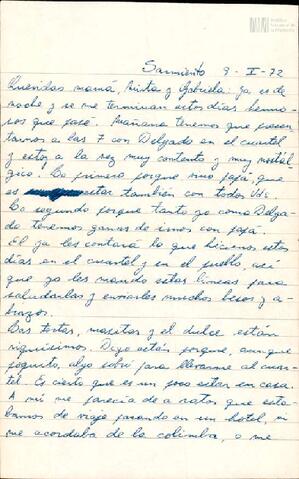 Sarmiento 9-I-72
Queridas mamá, Anita y Gabriela: ya es de
noche y se me terminan estos días hermo-
sos que pasé. Mañana tenemos que presen-
tarnos a las 7 con Delgado en el cuartel
y estoy a la vez muy contento y muy nostál-
gico. Lo primero porque vino papá, que
es estar también con todas Uds.
Lo segundo porque tanto yo como Delga-
do tenemos ganas de irnos con papá.
El ya les contará lo que hicimos estos
días en el cuartel y en el pueblo, así
que yo les mando estas líneas para
saludarlas y enviarles muchos besos y a-
brazos.
Las tortas, masitas y el dulce están
riquísimos. Digo están porque, aunque
poquito, algo sobró para llevarme al cuar-
tel. Es cierto que es un poco estar en casa.
A mí me parecía de a ratos, que está-
bamos de viaje parando en un hotel, ni
me acordaba de la colimba, o me